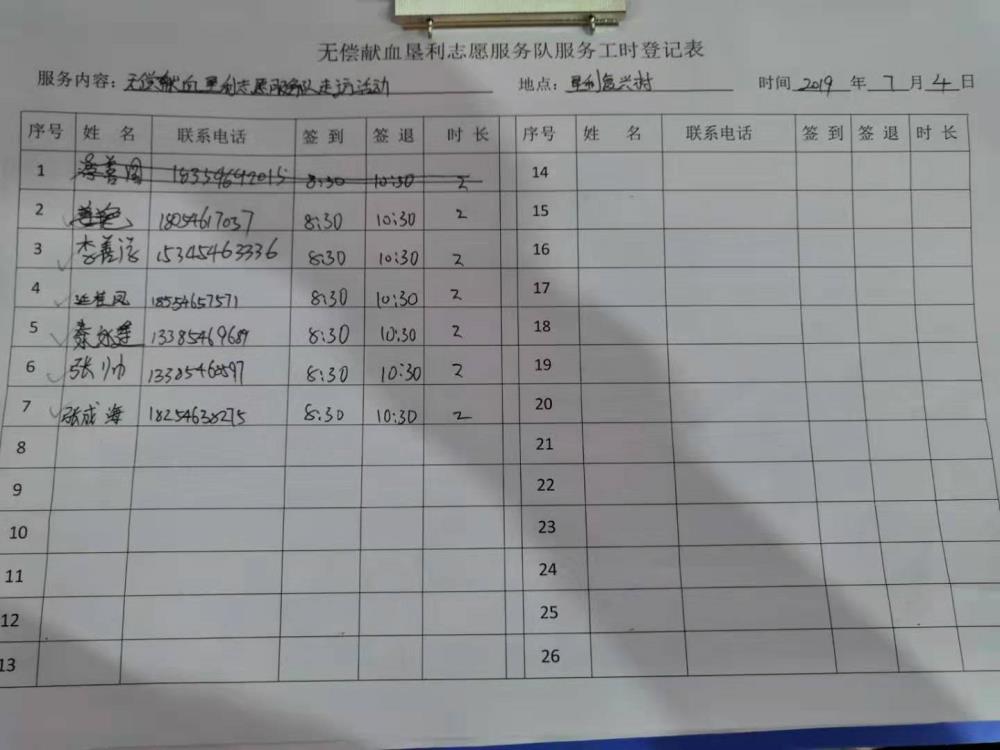 无偿献血垦利志愿服务队服务工时登记表
服务内容：无偿献血垦利志愿服务队走访活动 地点：垦利复兴村 时间 2019 年 7 月 4 日
序号 姓 名 联系电话 签 到 签 退 时 长 序号 姓 名 联系电话 签 到 签 退 时 长
1 18354642015 8:30 10:30 2 14
2 18054617037 8:30 10:30 2 15
3 李善 15345463336 8:30 10:30 2 16
4 桂凤 18554657571 8:30 10:30 2 17
5 秦永 13385469689 8:30 10:30 2 18
6 张帅 8:30 10:30 2 19
7 张成海 18254638275 8:30 10:30 2 20
8 21
9 22
10 23
11 24
12 25
13 26